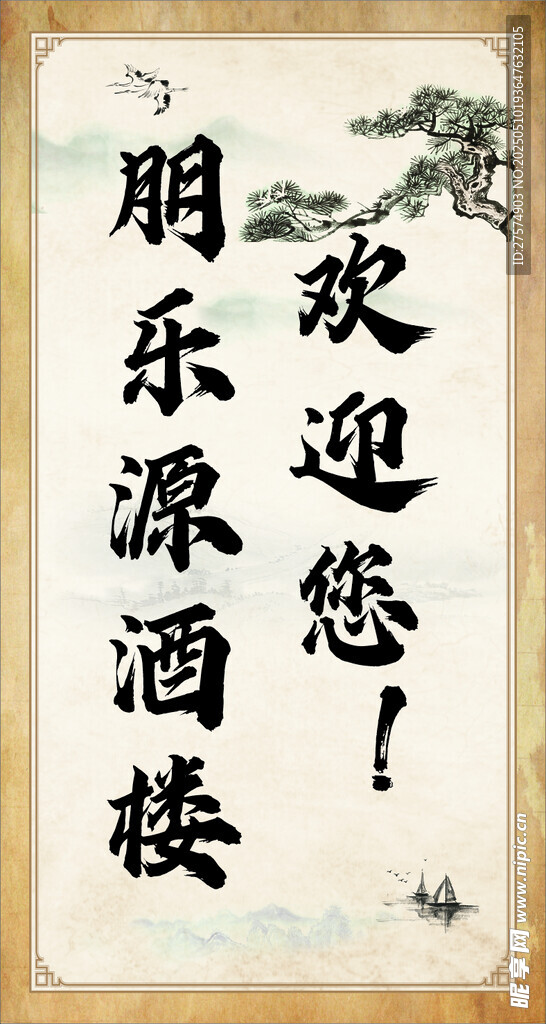 欢迎您！
朋乐源酒楼
ID:27574903 NO:20250510193647632105
昵享网 www.nipic.cn